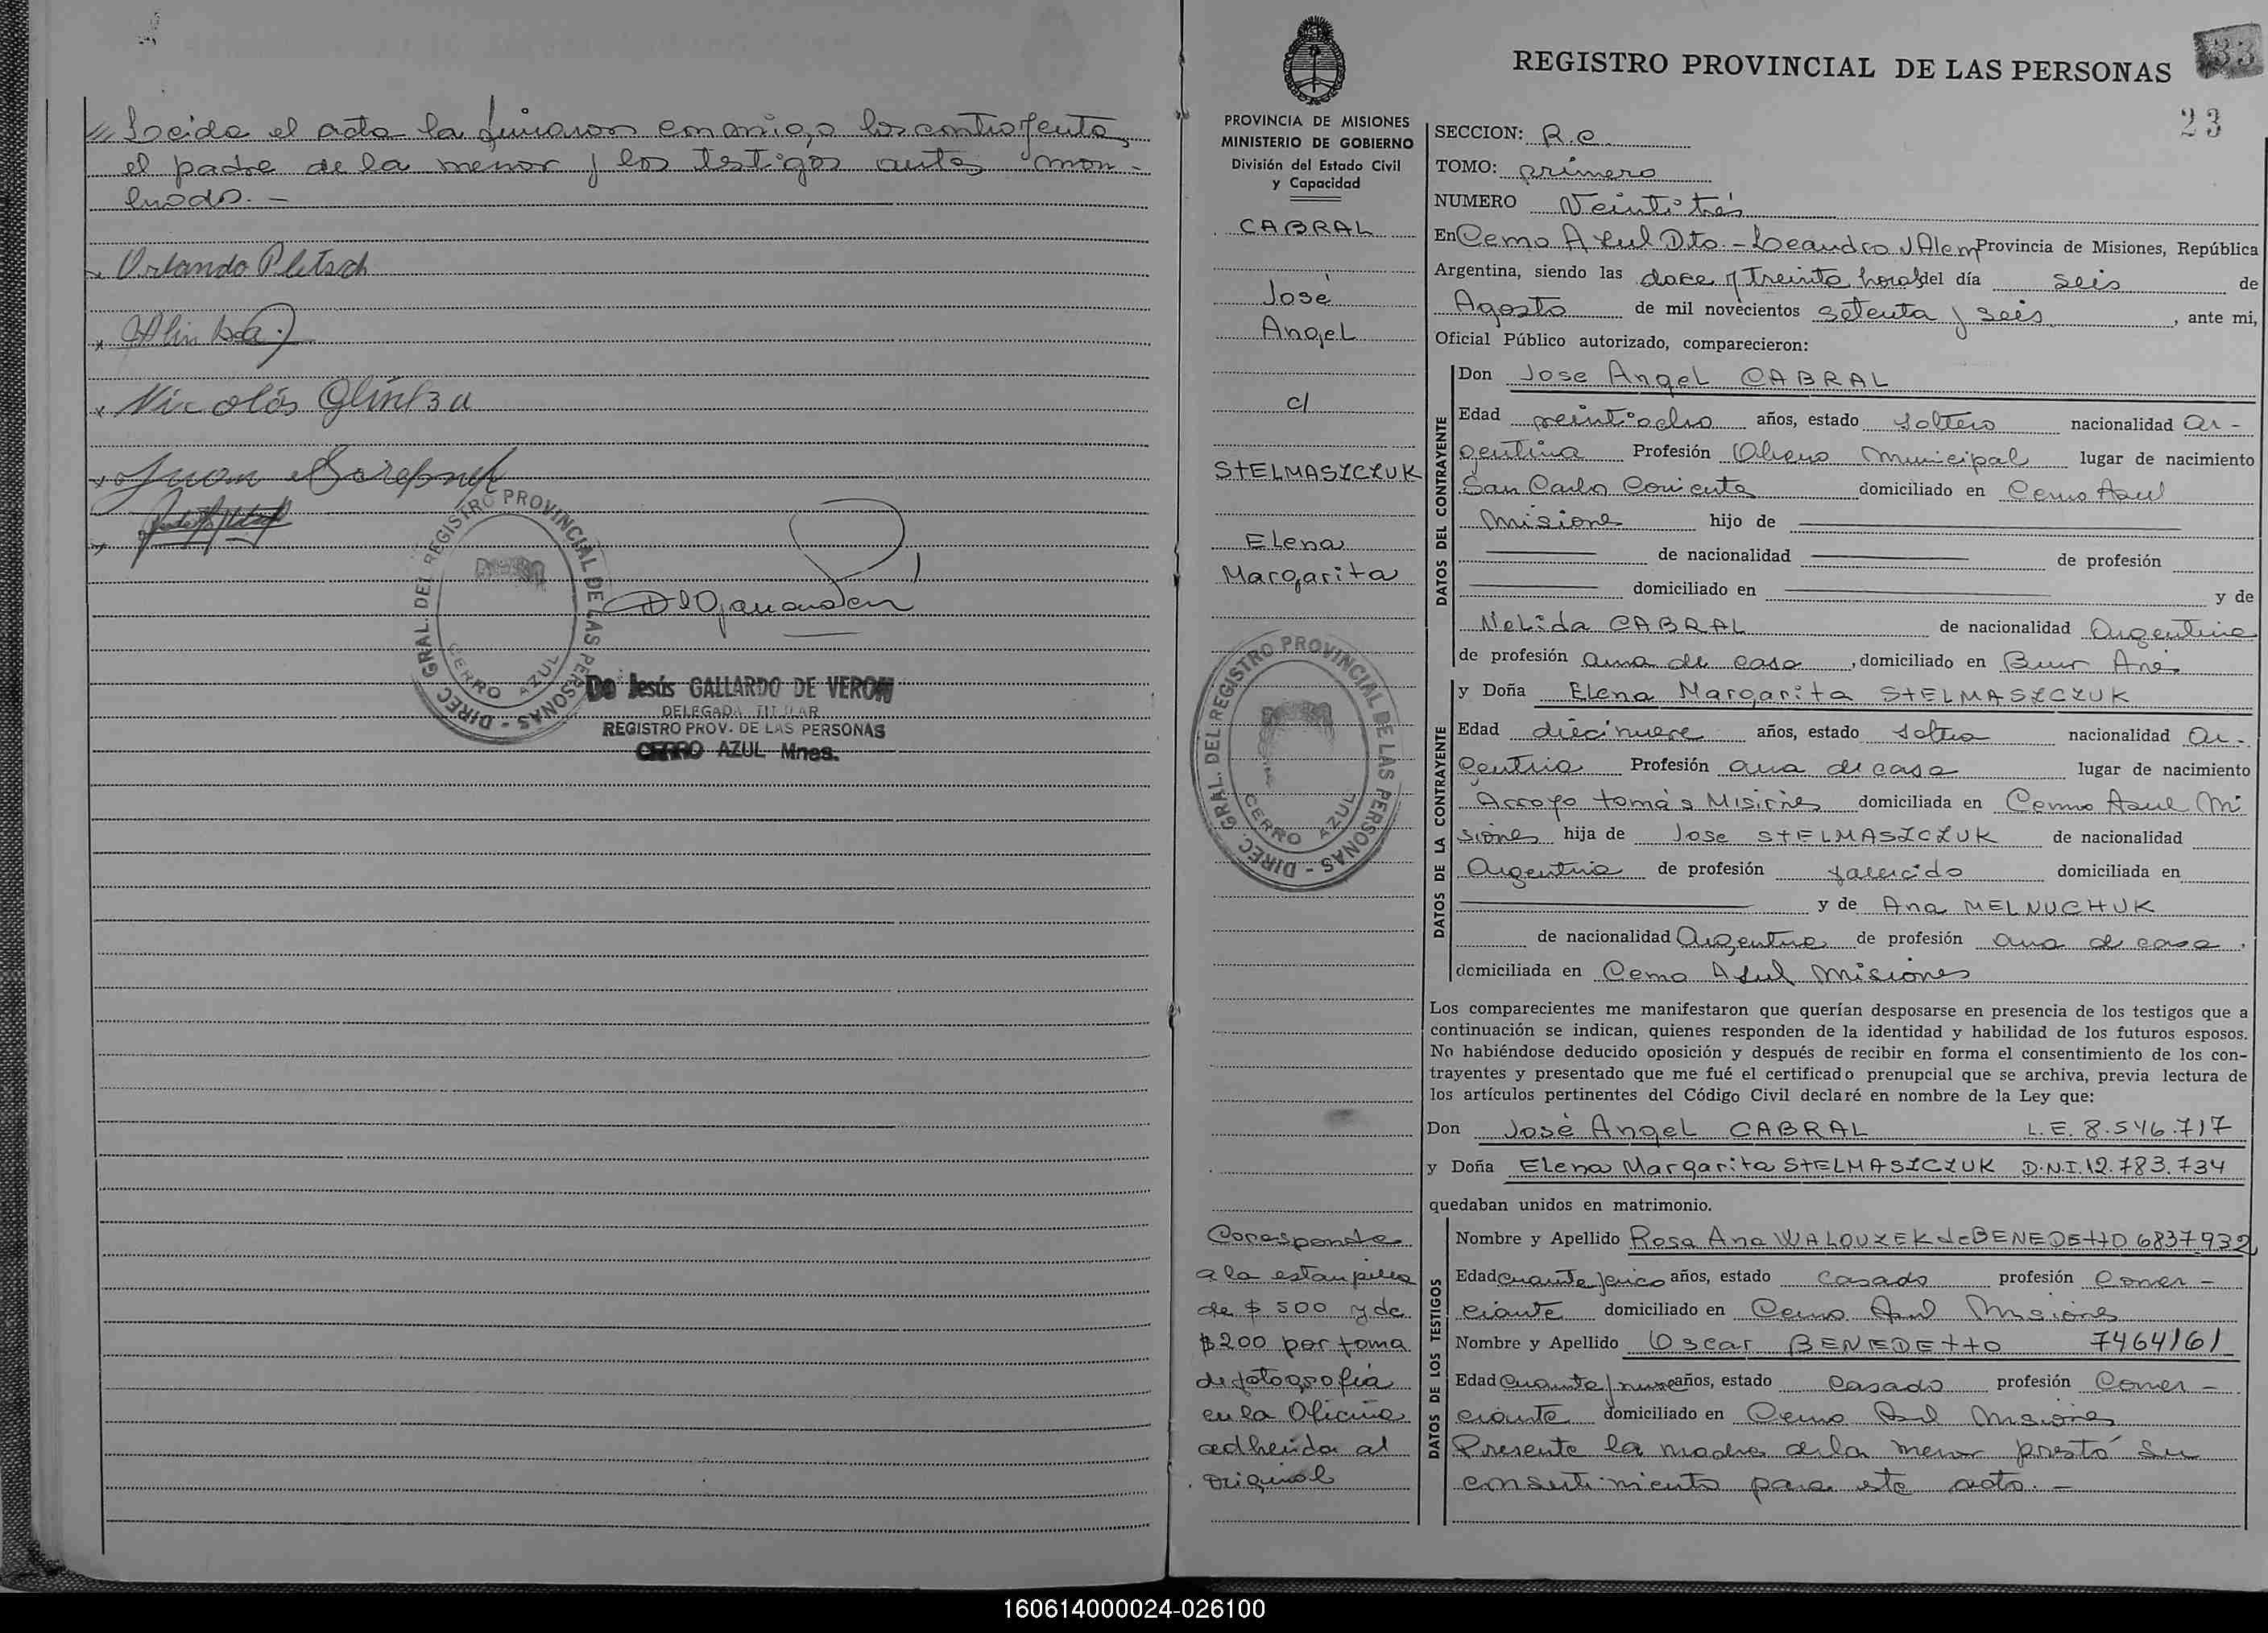 Leida el acta la firmaron conmigo los contrayentes,
el padre de la menor y los testigos antes mon-
luodo. -
Orlando Pletsch
Nicolás Glintza
Juan
DIREC. GRAL. DEL REGISTRO PROVINCIAL DE LAS PERSONAS - CERRO AZUL
De Jesús GALLARDO DE VERON
DELEGADA TITULAR
REGISTRO PROV. DE LAS PERSONAS
CERRO AZUL Mnes.
PROVINCIA DE MISIONES
MINISTERIO DE GOBIERNO
División del Estado Civil
y Capacidad
CABRAL
José
Angel
c/
STELMASZCZUK
Elena
Margarita
DIREC. GRAL. DEL REGISTRO PROVINCIAL DE LAS PERSONAS - CERRO AZUL
Corresponde
a la estampilla
de $ 500 y de
$200 por toma
de fotografia
en la Oficina
adherida al
original
REGISTRO PROVINCIAL DE LAS PERSONAS
33
23
SECCION: R.C.
TOMO: primero
NUMERO Veintitrés
En Cerro Azul Dto - Leandro N Alem Provincia de Misiones, República
Argentina, siendo las doce y treinta horas del día seis de
Agosto de mil novecientos setenta y seis, ante mi,
Oficial Público autorizado, comparecieron:
DATOS DEL CONTRAYENTE
Don Jose Angel CABRAL
Edad veintiocho años, estado soltero nacionalidad Ar-
gentina Profesión Obrero Municipal lugar de nacimiento
San Carlos Corrientes domiciliado en Cerro Azul
Misiones hijo de
de nacionalidad de profesión
domiciliado en y de
Nelida CABRAL de nacionalidad Argentina
de profesión ama de casa, domiciliado en Buenos Aires
DATOS DE LA CONTRAYENTE
y Doña Elena Margarita STELMASZCZUK
Edad diecinueve años, estado soltera nacionalidad Ar-
gentina Profesión ama de casa lugar de nacimiento
Arroyo tomás Misiones domiciliada en Cerro Azul Mi
siones hija de Jose STELMASZCZUK de nacionalidad
Argentina de profesión falecido domiciliada en
y de Ana MELNUCHUK
de nacionalidad Argentina de profesión ama de casa.
domiciliada en Cerro Azul Misiones
Los comparecientes me manifestaron que querían desposarse en presencia de los testigos que a
continuación se indican, quienes responden de la identidad y habilidad de los futuros esposos.
No habiéndose deducido oposición y después de recibir en forma el consentimiento de los con-
trayentes y presentado que me fué el certificado prenupcial que se archiva, previa lectura de
los artículos pertinentes del Código Civil declaré en nombre de la Ley que:
Don José Angel CABRAL L.E. 8.546.717
y Doña Elena Margarita STELMASZCZUK D.N.I.12.783.734
quedaban unidos en matrimonio.
DATOS DE LOS TESTIGOS
Nombre y Apellido Rosa Ana WALOUZEK de BENEDETTO 6837932
Edad cuarenta y cinco años, estado casado profesión Comer-
ciante domiciliado en Cerro Azul Misiones
Nombre y Apellido Oscar BENEDETTO 7464161
Edad cuarenta y nueve años, estado casado profesión Comer-
ciante domiciliado en Cerro Azul Misiones
Presente la madre de la menor prestó su
consentimiento para este acto. -
160614000024-026100